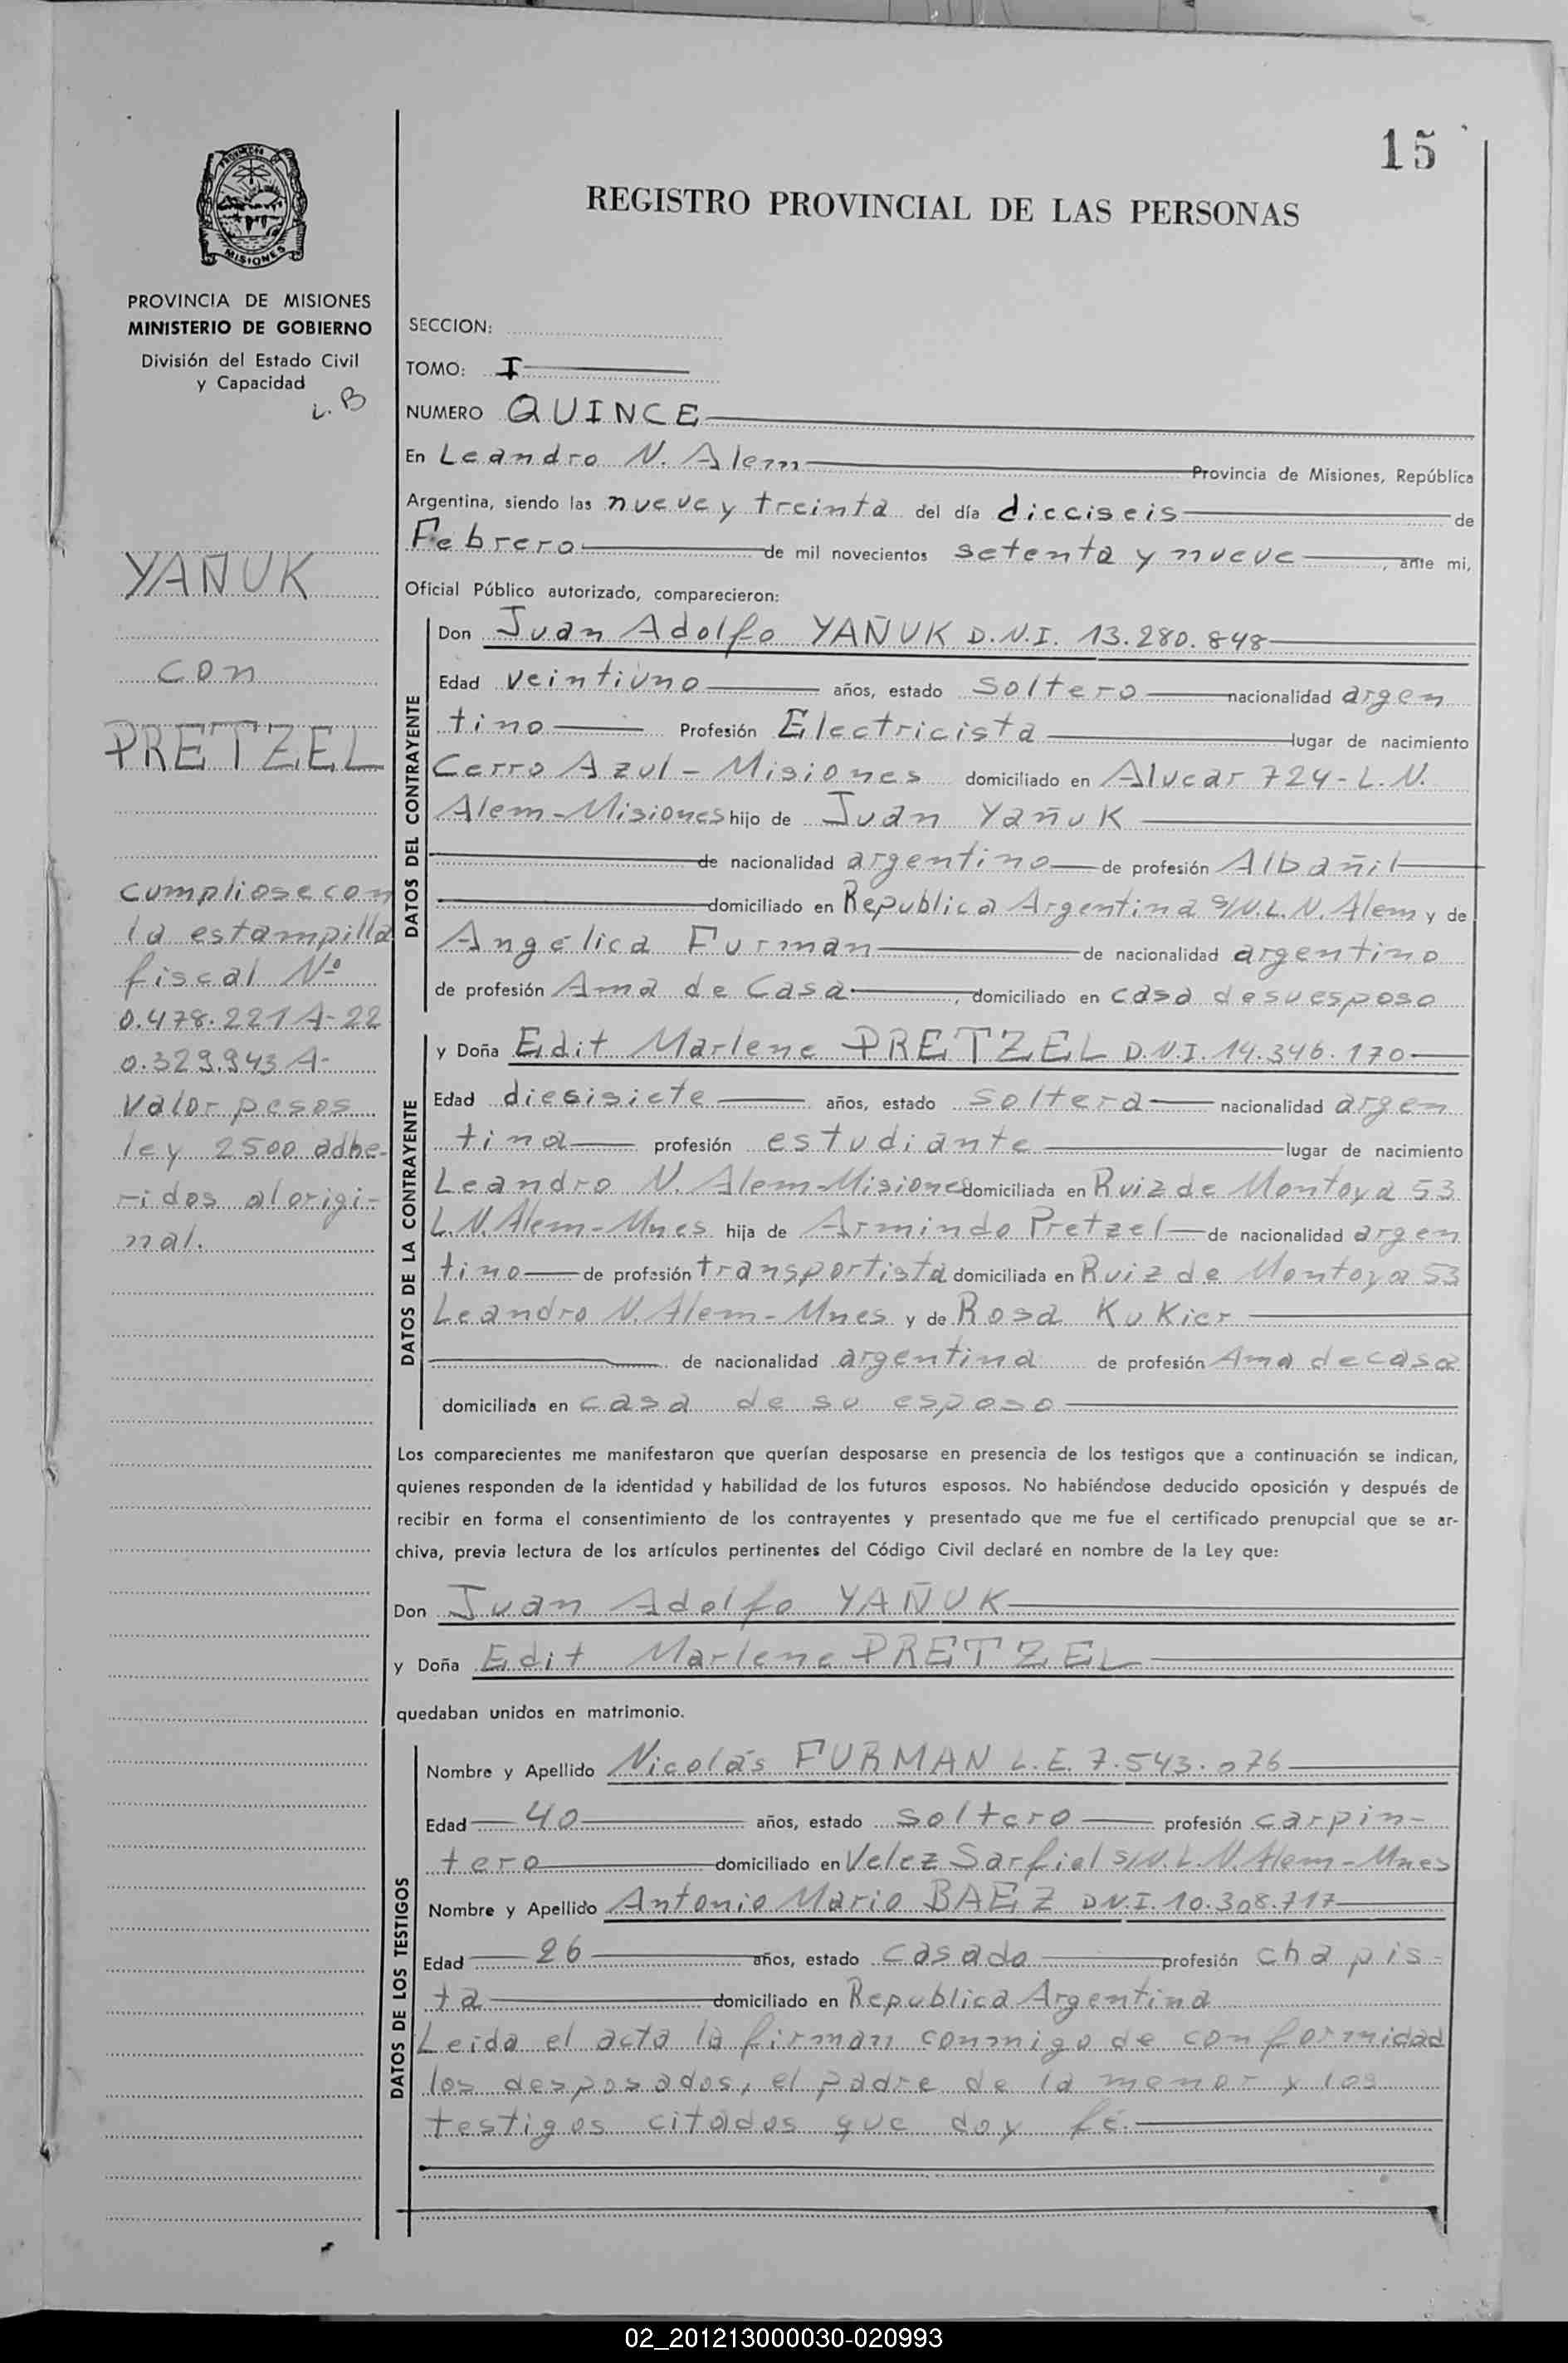 15
REGISTRO PROVINCIAL DE LAS PERSONAS
PROVINCIA DE MISIONES
MINISTERIO DE GOBIERNO
División del Estado Civil
y Capacidad
L. B
YAÑUK
con
PRETZEL
cumpliose con
la estampilla
fiscal Nº
0.478.221 A-22
0.329.943 A-
Valor pesos
ley 2500 adhe-
ridos al origi-
nal.
SECCION:
TOMO: I
NUMERO QUINCE
En Leandro N. Alem Provincia de Misiones, República
Argentina, siendo las nueve y treinta del día dieciseis de
Febrero de mil novecientos setenta y nueve, ante mi,
Oficial Público autorizado, comparecieron:
DATOS DEL CONTRAYENTE
Don Juan Adolfo YAÑUK D.N.I. 13.280.848
Edad veintiuno años, estado soltero nacionalidad argen
tino Profesión Electricista lugar de nacimiento
Cerro Azul - Misiones domiciliado en Alvear 724 - L.N.
Alem - Misiones hijo de Juan Yañuk
de nacionalidad argentino de profesión Albañil
domiciliado en Republica Argentina S/N. L. N. Alem y de
Angélica Furman de nacionalidad argentino
de profesión Ama de Casa, domiciliado en casa de su esposo
DATOS DE LA CONTRAYENTE
y Doña Edit Marlene PRETZEL D.N.I. 14.346.170
Edad diesisiete años, estado soltera nacionalidad argen
tina profesión estudiante lugar de nacimiento
Leandro N. Alem - Misiones domiciliada en Ruiz de Montoya 53
L.N. Alem - Mnes hija de Armindo Pretzel de nacionalidad argen
tino de profesión transportista domiciliada en Ruiz de Montoya 53
Leandro N. Alem - Mnes y de Rosa Kukier
de nacionalidad argentina de profesión Ama de casa
domiciliada en casa de su esposo
Los comparecientes me manifestaron que querían desposarse en presencia de los testigos que a continuación se indican,
quienes responden de la identidad y habilidad de los futuros esposos. No habiéndose deducido oposición y después de
recibir en forma el consentimiento de los contrayentes y presentado que me fue el certificado prenupcial que se ar-
chiva, previa lectura de los artículos pertinentes del Código Civil declaré en nombre de la Ley que:
Don Juan Adolfo YAÑUK
y Doña Edit Marlene PRETZEL
quedaban unidos en matrimonio.
DATOS DE LOS TESTIGOS
Nombre y Apellido Nicolás FURMAN L.E. 7.543.076
Edad 40 años, estado soltero profesión carpin-
tero domiciliado en Velez Sarfiel S/N. L.N. Alem - Mnes
Nombre y Apellido Antonio Mario BAEZ DN.I. 10.308.717
Edad 26 años, estado casado profesión chapis-
ta domiciliado en Republica Argentina
Leida el acta la firman conmigo de conformidad
los desposados, el padre de la menor y los
testigos citados que doy fé.
02_201213000030-020993